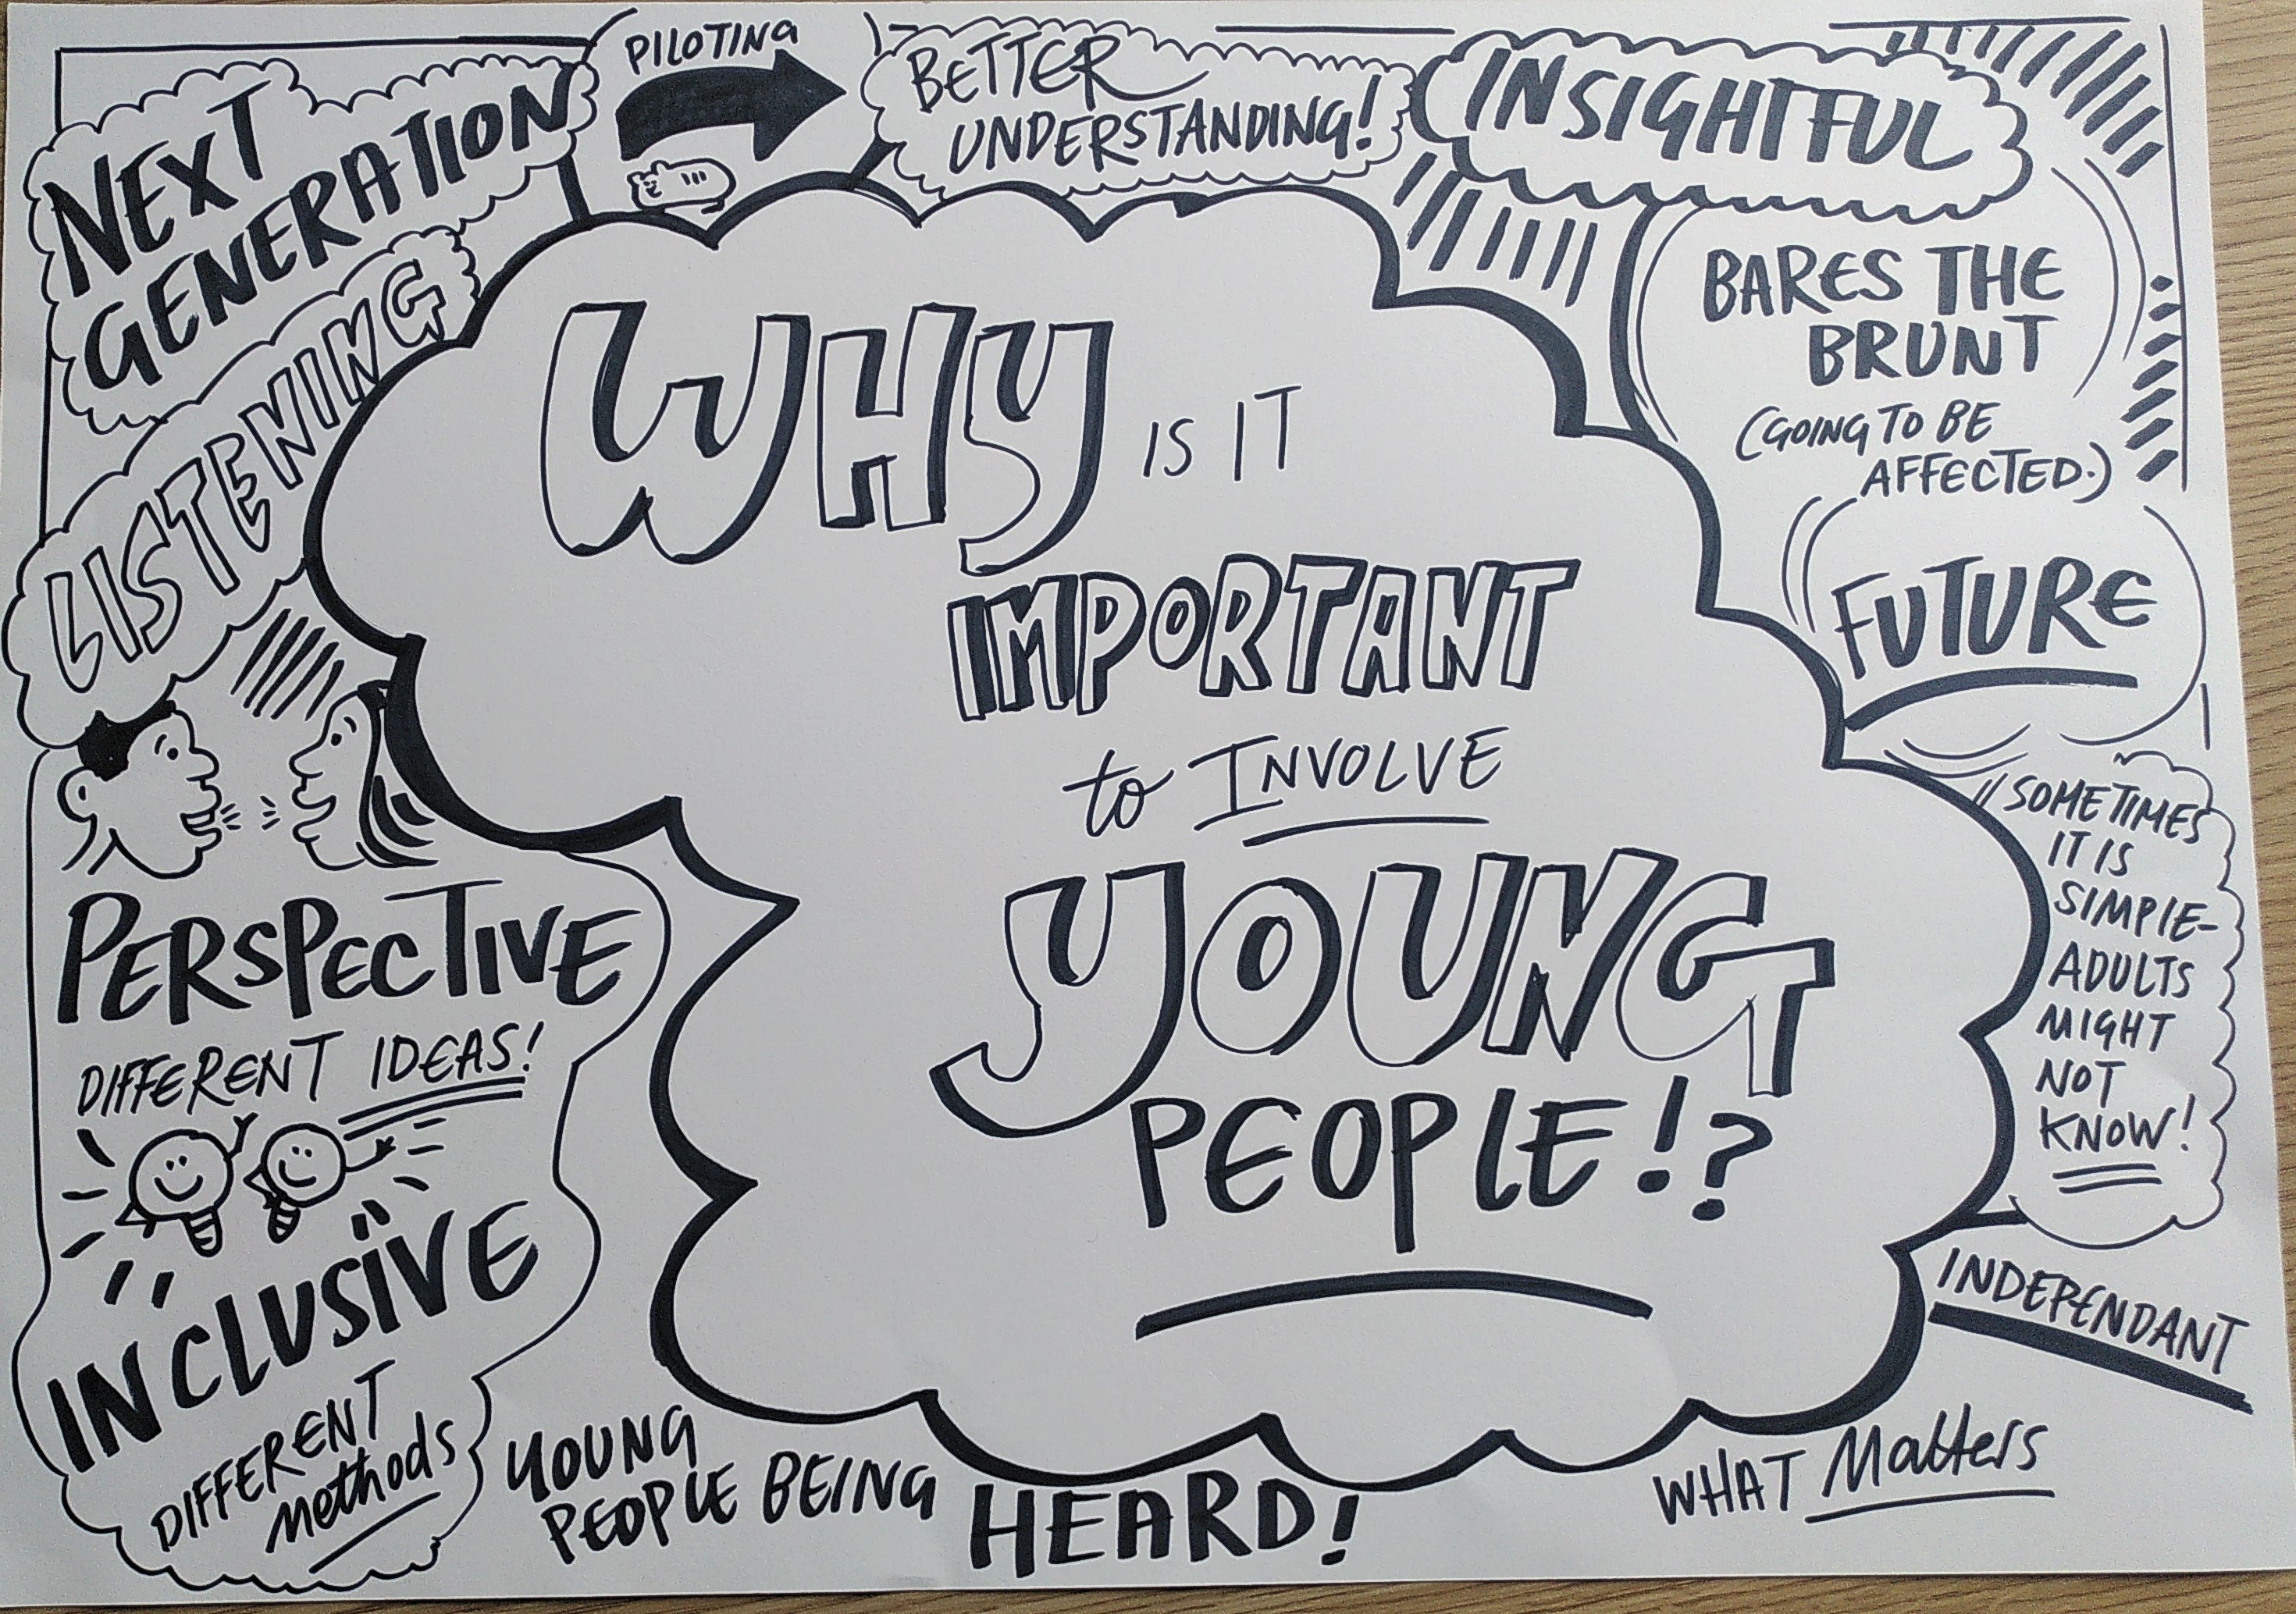 NEXT
GENERATION
PILOTING
BETTER
UNDERSTANDING!
INSIGHTFUL
LISTENING
BARES THE
BRUNT
(GOING TO BE
AFFECTED.)
FUTURE
WHY IS IT
IMPORTANT
to INVOLVE
YOUNG
PEOPLE!?
"SOMETIMES
IT IS
SIMPLE-
ADULTS
MIGHT
NOT
KNOW!
PERSPECTIVE
DIFFERENT IDEAS!
INCLUSIVE
DIFFERENT
Methods
YOUNG
PEOPLE BEING
HEARD!
INDEPENDANT
WHAT Matters